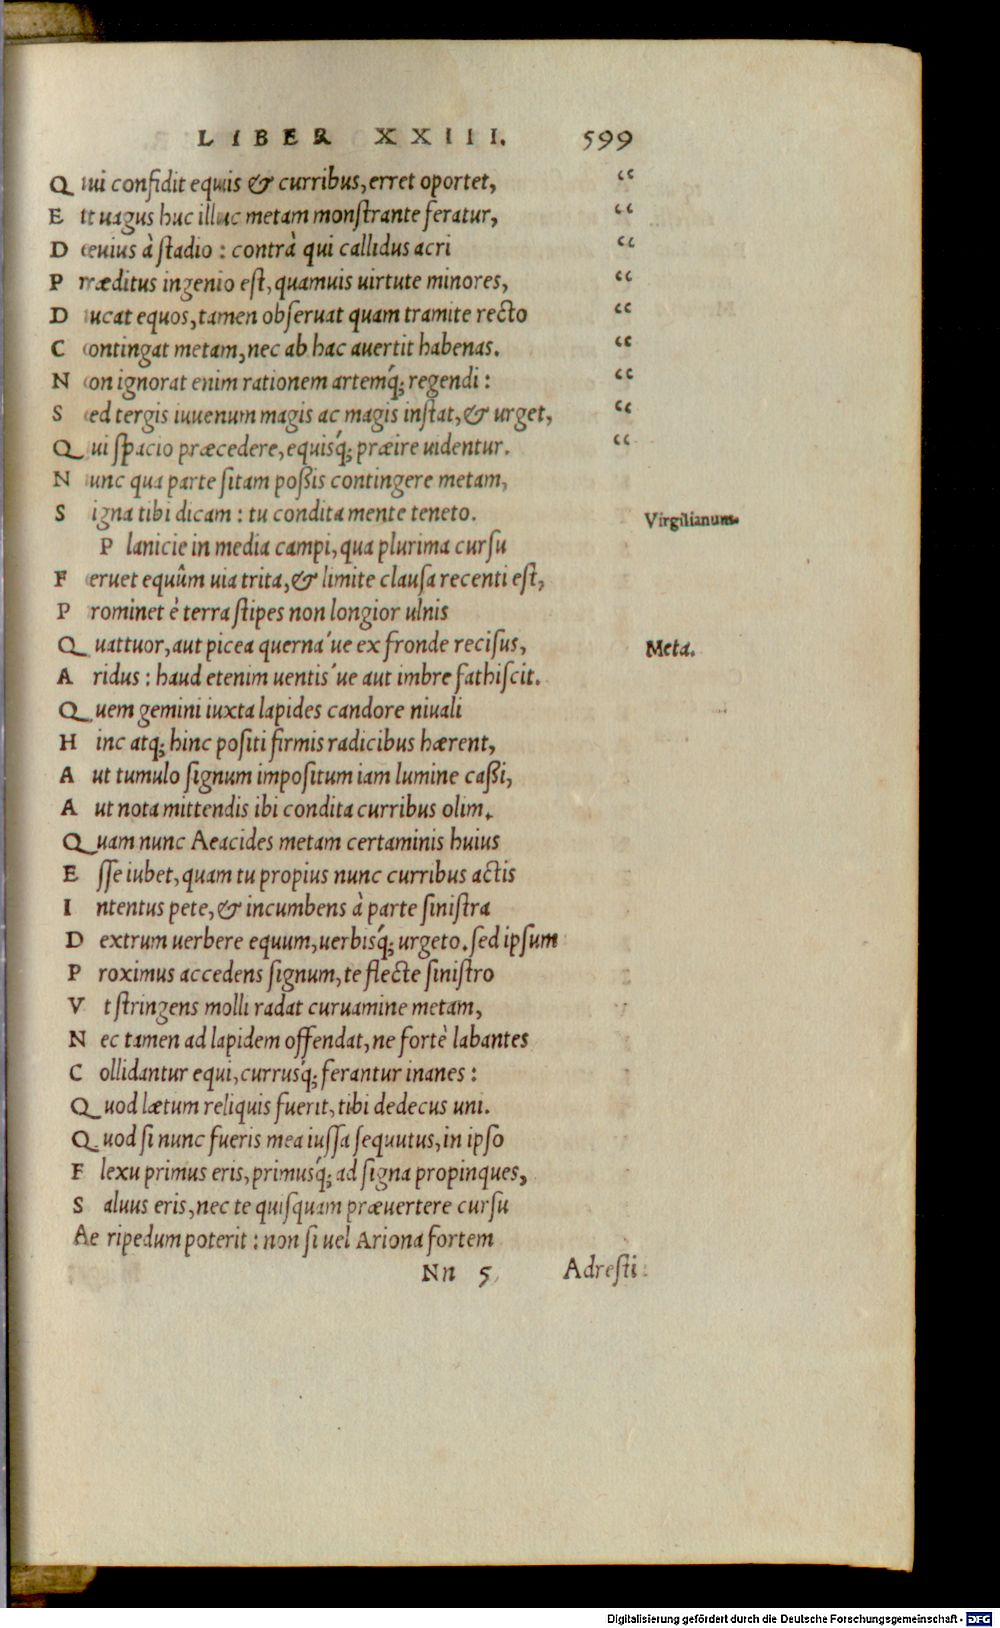 LIBER XXIII. 599
Qui confidit equis & curribus, erret oportet, “
Et uagus huc illuc metam monſtrante feratur, “
Deuius à ſtadio : contrà qui callidus acri “
Præditus ingenio eſt, quamuis uirtute minores, “
Ducat equos, tamen obſeruat quam tramite recto “
Contingat metam, nec ab hac auertit habenas. “
Non ignorat enim rationem artemq́; regendi : “
Sed tergis iuuenum magis ac magis inſtat, & urget, “
Qui ſpacio præcedere, equisq́; præire uidentur. “
Nunc qua parte ſitam poßis contingere metam,
Signa tibi dicam : tu condita mente teneto.
Virgilianum.
Planicie in media campi, qua plurima curſu
Feruet equûm uia trita, & limite clauſa recenti eſt,
Prominet è terra ſtipes non longior ulnis
Quattuor, aut picea querna´ue ex fronde reciſus,
Meta.
Aridus : haud etenim uentis´ue aut imbre fathiſcit.
Quem gemini iuxta lapides candore niuali
Hinc atq; hinc poſiti firmis radicibus hærent,
Aut tumulo ſignum impoſitum iam lumine caßi,
Aut nota mittendis ibi condita curribus olim.
Quam nunc Aeacides metam certaminis huius
Eſſe iubet, quam tu propius nunc curribus actis
Intentus pete, & incumbens à parte ſiniſtra
Dextrum uerbere equum, uerbisq́; urgeto. ſed ipſum
Proximus accedens ſignum, te flecte ſiniſtro
Vt ſtringens molli radat curuamine metam,
Nec tamen ad lapidem offendat, ne fortè labantes
Collidantur equi, currusq́; ferantur inanes :
Quod lætum reliquis fuerit, tibi dedecus uni.
Quod ſi nunc fueris mea iuſſa ſequutus, in ipſo
Flexu primus eris, primusq́; ad ſigna propinques,
Saluus eris, nec te quiſquam præuertere curſu
Aeripedum poterit : non ſi uel Ariona fortem
Nn 5 Adreſti
Digitalisierung gefördert durch die Deutsche Forschungsgemeinschaft - DFG